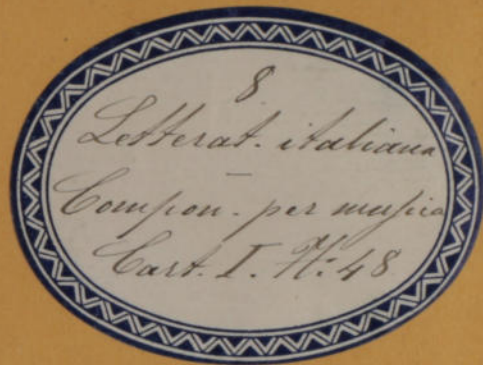 8
Letterat. italiana
—
Compon. per musica
Cart. I. N: 48